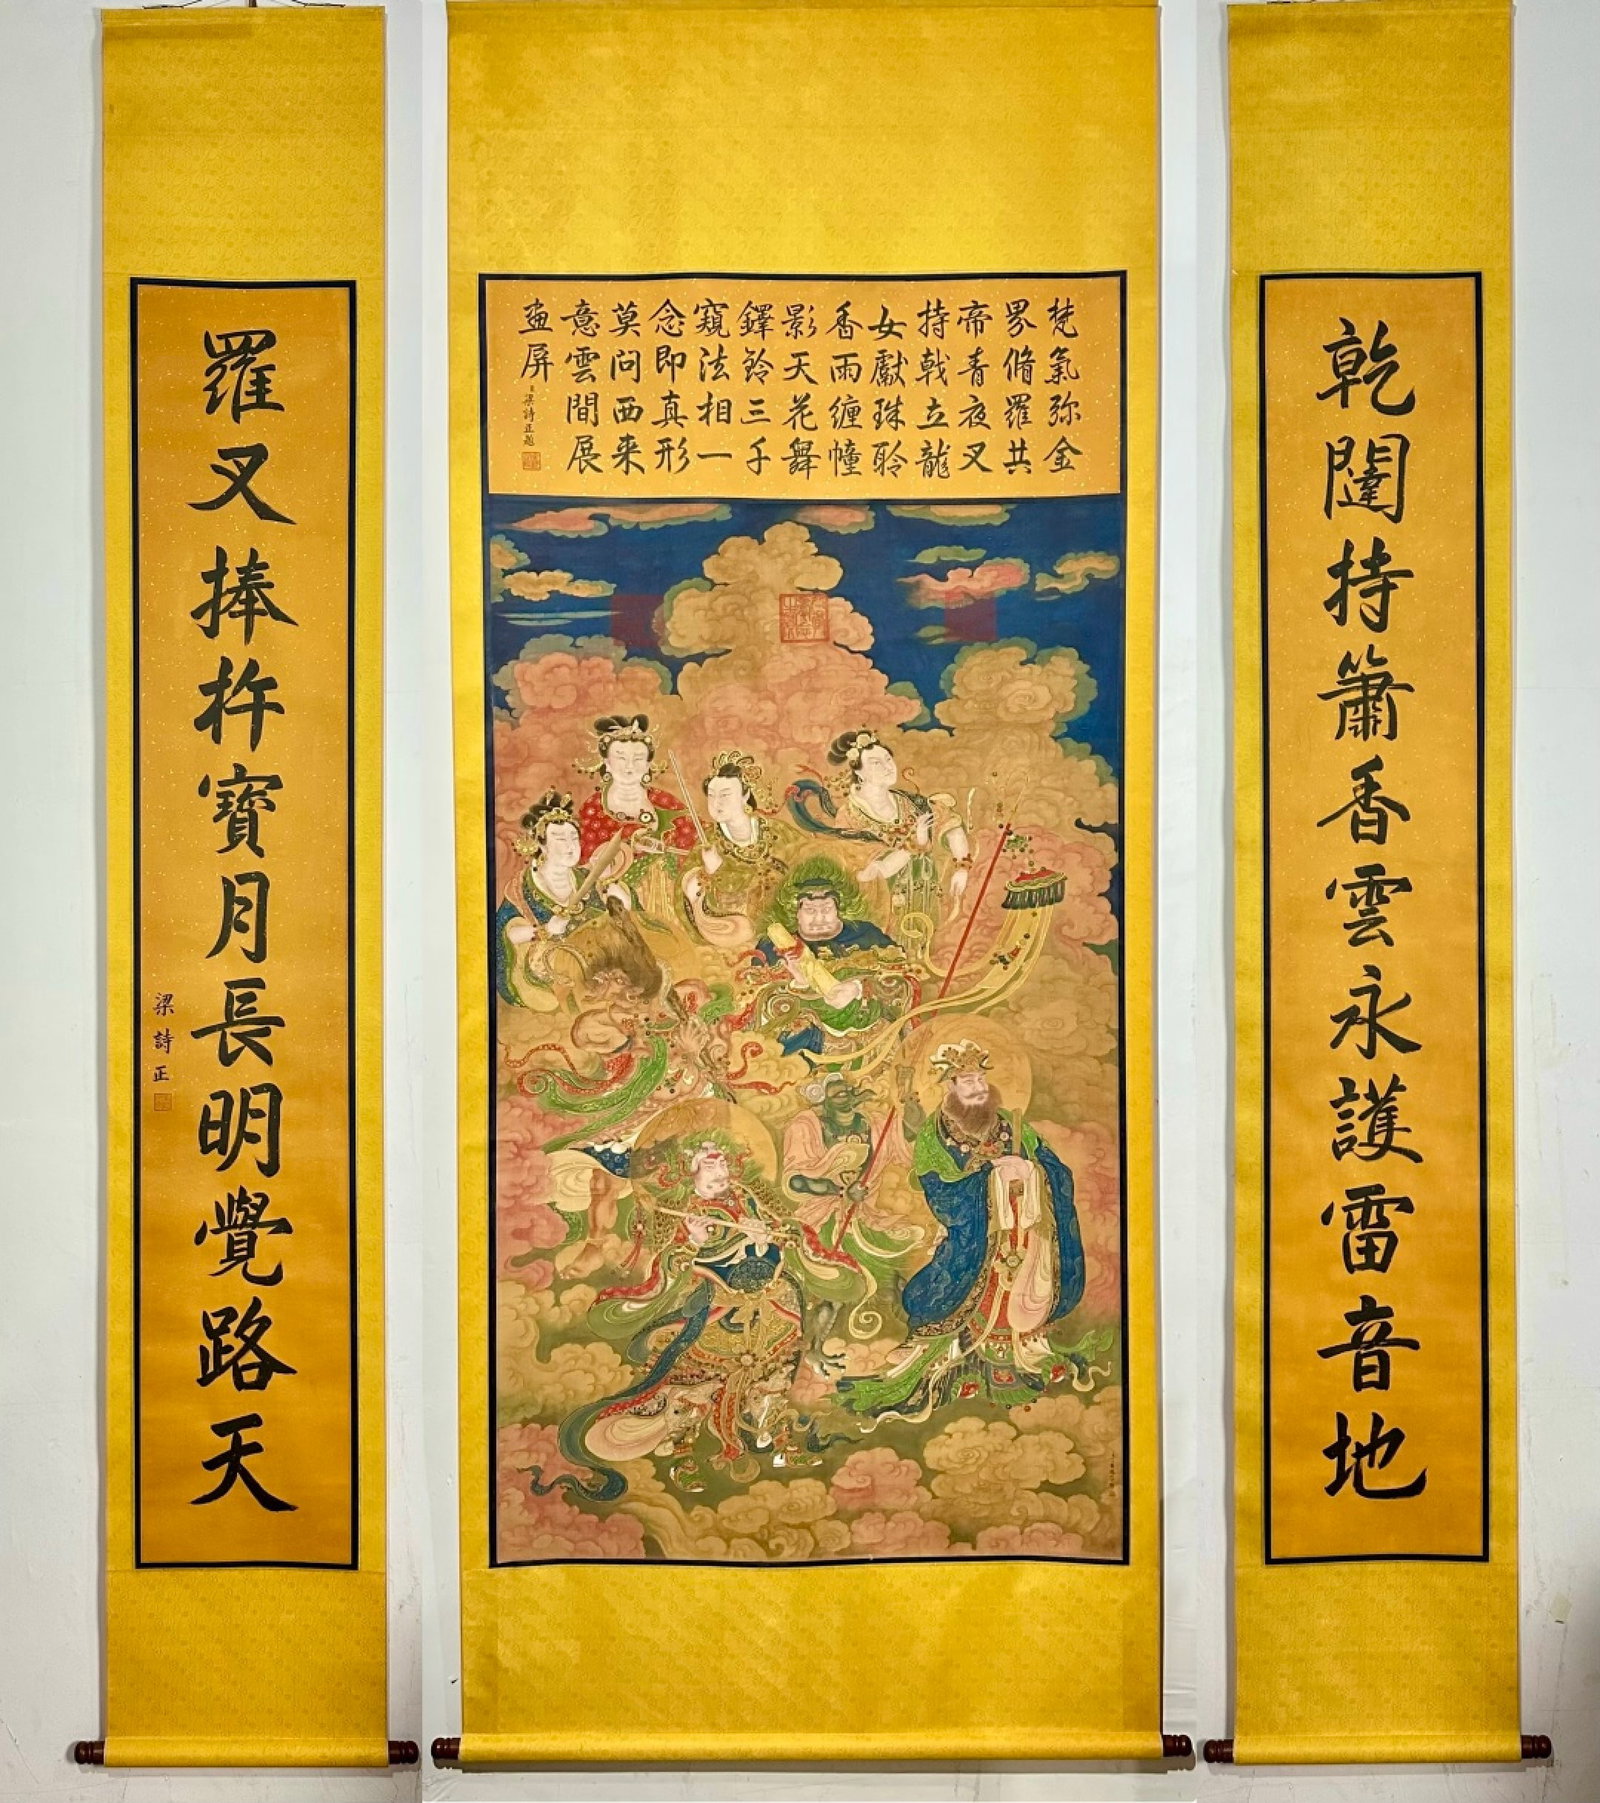 乾闥持簫香雲永護雷音地
梵氣弥金
界脩羅共
帝青夜叉
持戟立龍
女獻珠聆
香雨纏幢
影天花舞
鐸鈴三千
窺法相一
念即真形
莫问西来
意雲間展
畫屏
梁詩正題
羅叉捧杵寶月長明覺路天
梁詩正